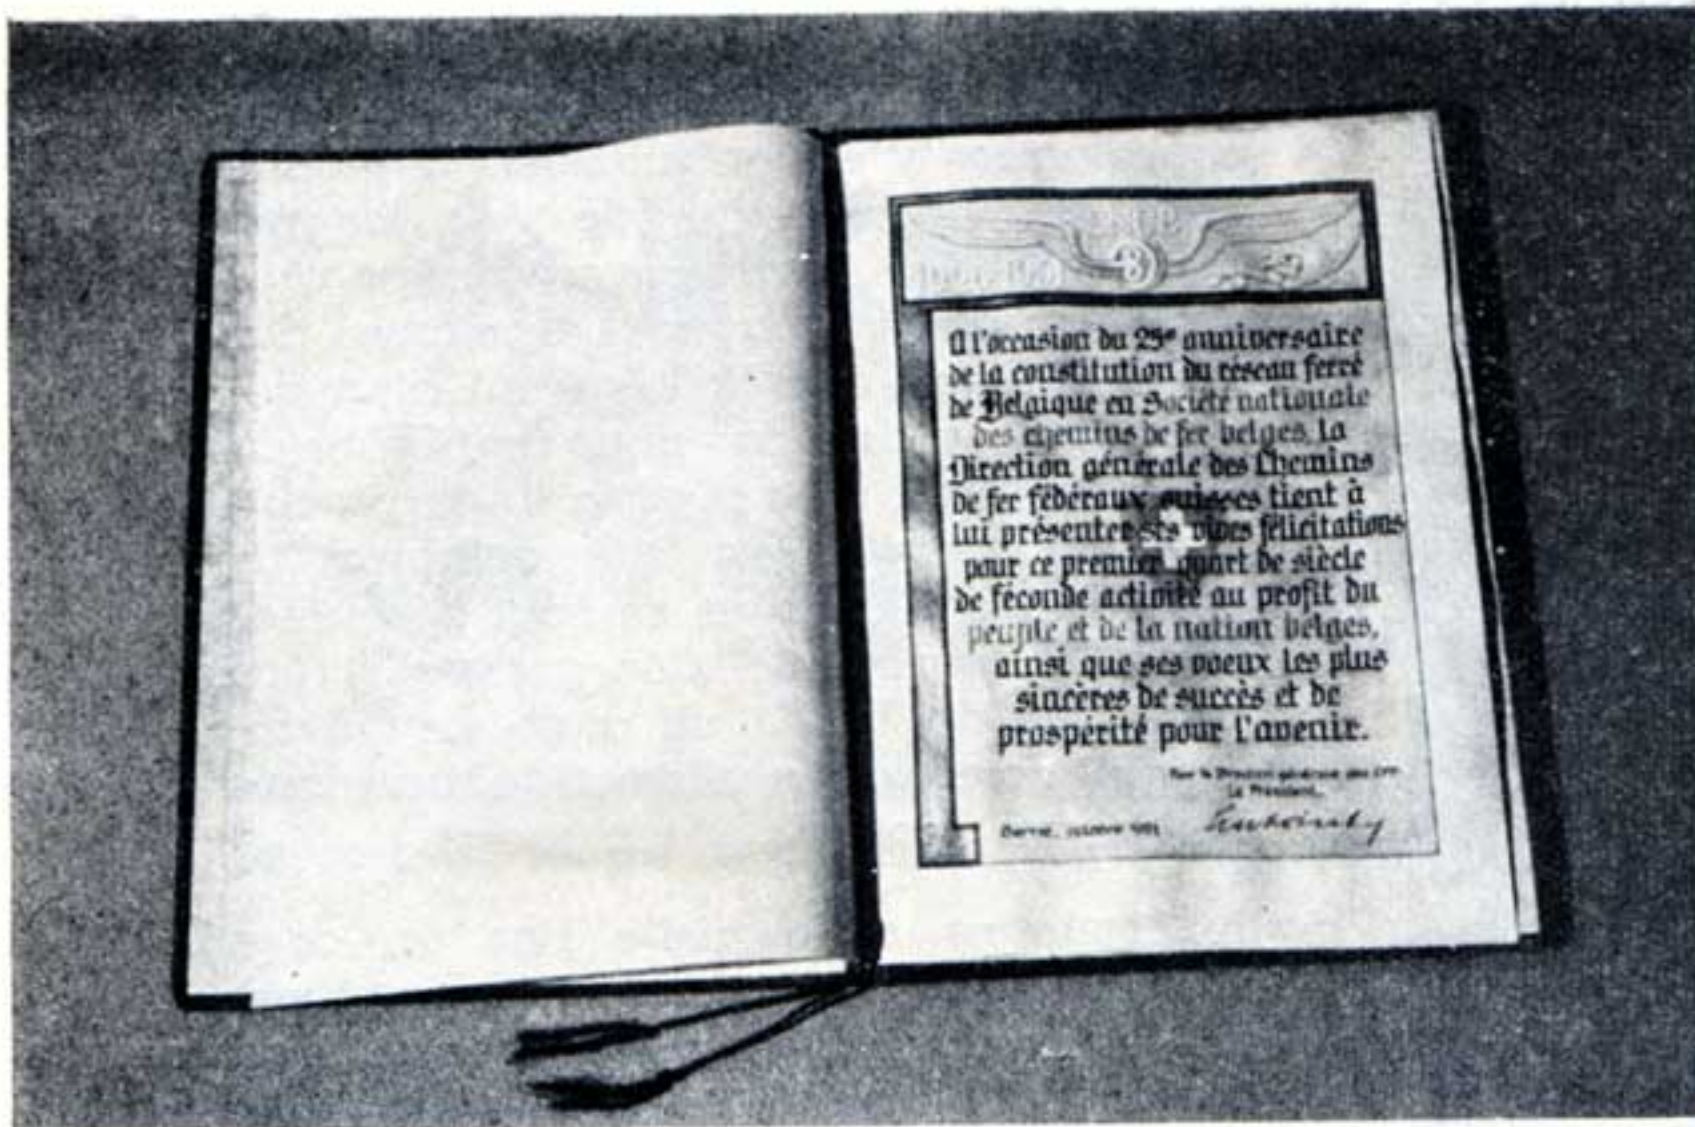 B
A l'occasion du 25e anniversaire
de la constitution du réseau ferré
de Belgique en Société nationale
des chemins de fer belges, la
Direction générale des Chemins
de fer fédéraux suisses tient à
lui présenter ses vives félicitations
pour ce premier quart de siècle
de féconde activité au profit du
peuple et de la nation belges,
ainsi que ses voeux les plus
sincères de succès et de
prospérité pour l'avenir.
Pour la Direction générale des CFF
Le Président,
Berne, octobre 1951